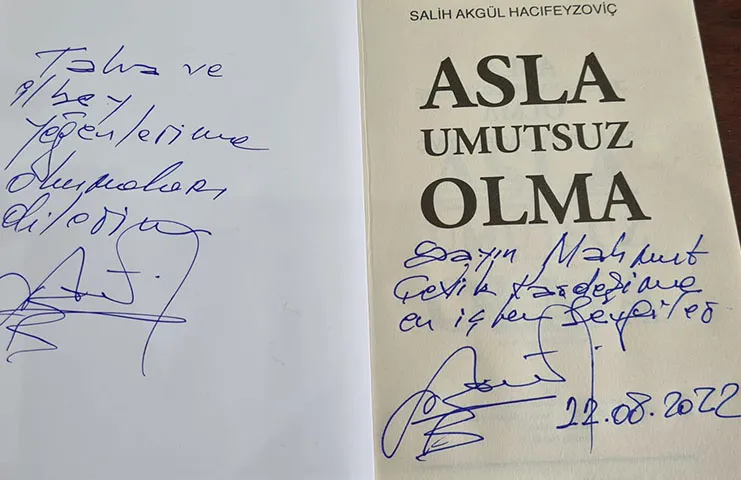 Talha ve
ilbey
yeğenlerime
okumaları
dileğim
SALİH AKGÜL HACIFEYZOVİÇ
ASLA
UMUTSUZ
OLMA
Sayın Mahmut
Çevik kardeşime
en içten sevgiler
22.08.2022